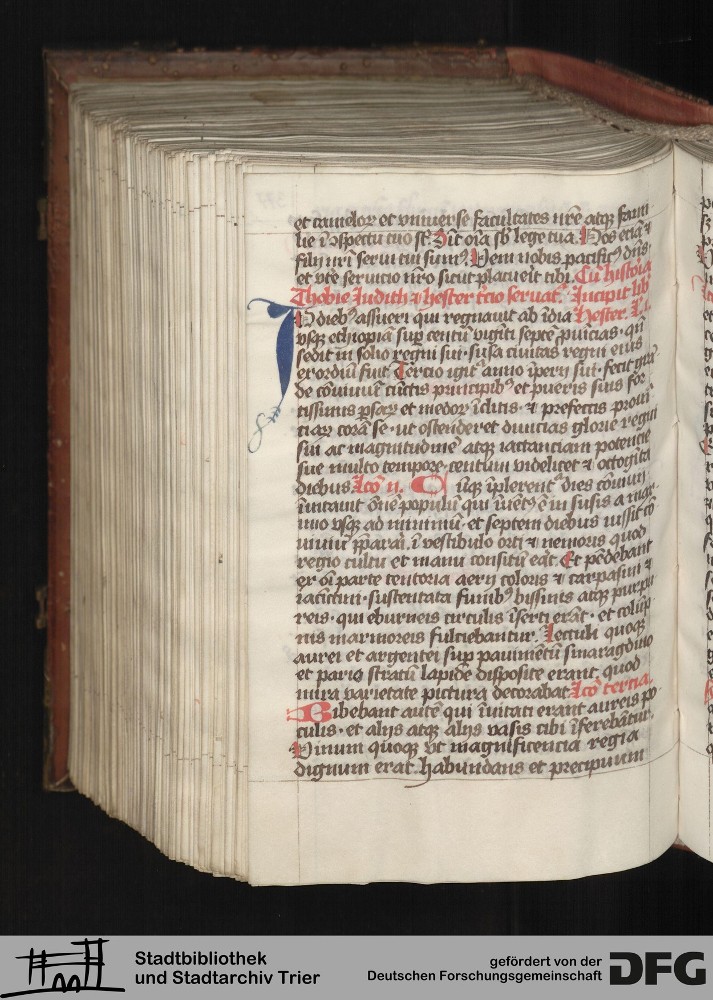 et camelorꝝ et vniuerse facultates nr̄e atqꝫ fami
lie ī ꝯspectu tuo st̄. Sīt oīa sb̄ lege tua. Nos etiā ⁊
filij nr̄i serui tui sumꝰ. Veni nobis pacificꝰ dn̄s
et vte seruicio nr̄o sicut placueit tibi. Cū histoia
Thobie Iudith ⁊ hester t̄cio seruat᷑. Incipit lib̄
N diebꝰ assueri qui regnauit ab īdia Hester. L. i.
vsqꝫ ethiopiā suꝑ centū viginti septē ꝓuīcias · qn̄
sedit in solio regni sui · susa ciuitas regni eius
exordiū fuit Tercio igit᷑ anno īperij sui · fecit grā
de cōuiuiū cūctis principibꝰ et pueris suis for
tissimis ꝑsaꝝ et medoꝝ īclitis · ⁊ prefectis prouī
ciaꝝ corā se · ut ostenderet diuicias glorie regni
sui ac magnitudinē atqꝫ iactanciam potencie
sue multo tempore · centum videlicet ⁊ octogīta
diebus Lcō ii. Cūqꝫ īplerent᷑ dies cōuiuij
īuitauit om̄ē populū qui īuētꝰ ē in susis a maxi
mo vsqꝫ ad minimū · et septem diebus iussit cō
uiuiū p̄parai · ī vestibulo orti ⁊ nemoris quod
regio cultu et manu consitū eāt. Et pēdebant
ex oī parte tentoria aerij coloris ⁊ carpasini ⁊
iacictini · sustentata funibꝰ bissinis atqꝫ purpu
reis · qui eburneis circulis īserti erāt · et colūp
nis marmoreis fulciebantur. Lectuli quoqꝫ
aurei et argentei suꝑ pauimētū smaragdino
et pario stratū lapide dispositi erant · quod
mira varietate pictura decorabat Lcō tercia.
Bibebant autē qui īuitati erant aureis po
culis · et alijs atqꝫ alijs vasis cibi īferebāt᷑.
Vinum quoqꝫ vt magnificencia regia
dignum erat habundans et precipuum
Stadtbibliothek
und Stadtarchiv Trier
gefördert von der
Deutschen Forschungsgemeinschaft
DFG